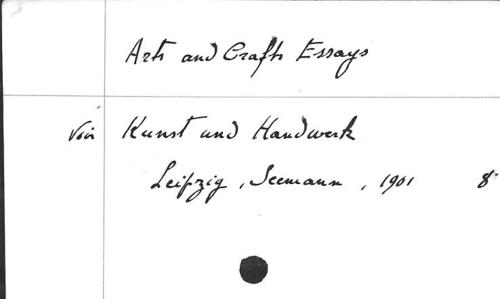 Arts and Crafts Essays
Voir Kunst und Handwerk
Leipzig, Seemann, 1901 8°